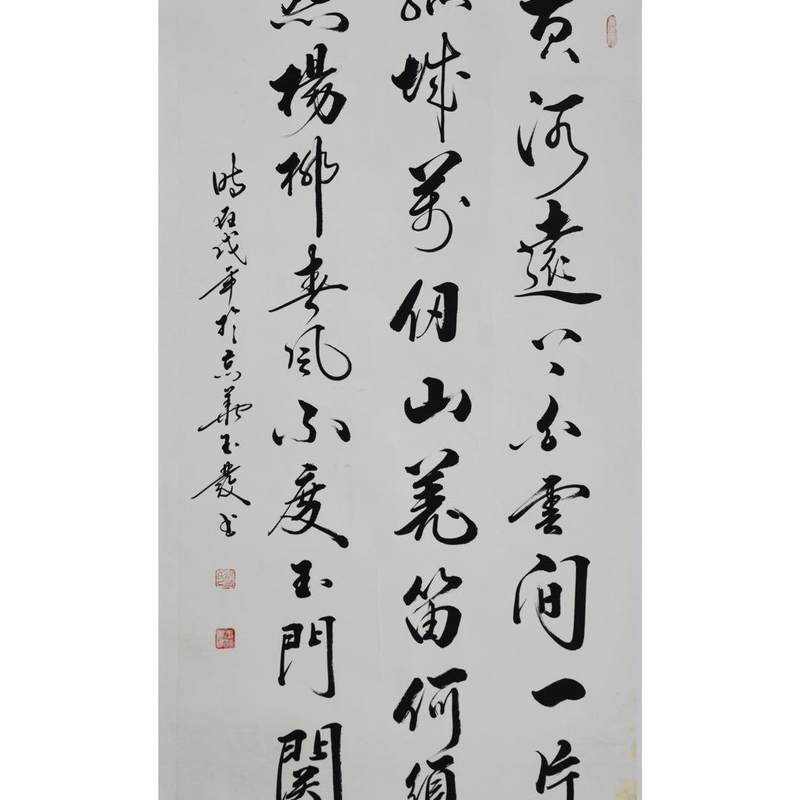 黃河遠上白雲間一片
孤城萬仞山羌笛何須
怨楊柳春風不度玉門関
時在戊年於京華玉發书